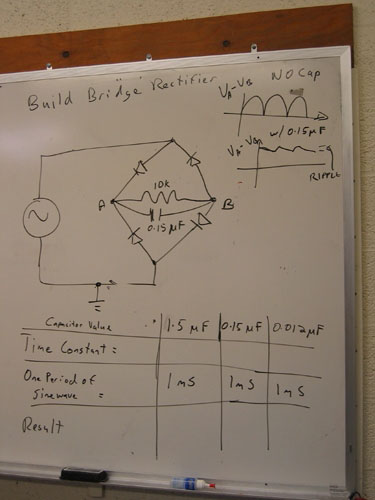 Build Bridge Rectifier
VA-VB NO Cap
w/0.15µF
VA-VB
RIPPLE
10k
A B
0.15µF
Capacitor Value 1.5µF 0.15µF 0.012µF
Time Constant =
One Period of 1mS 1mS 1mS
Sinewave =
Result